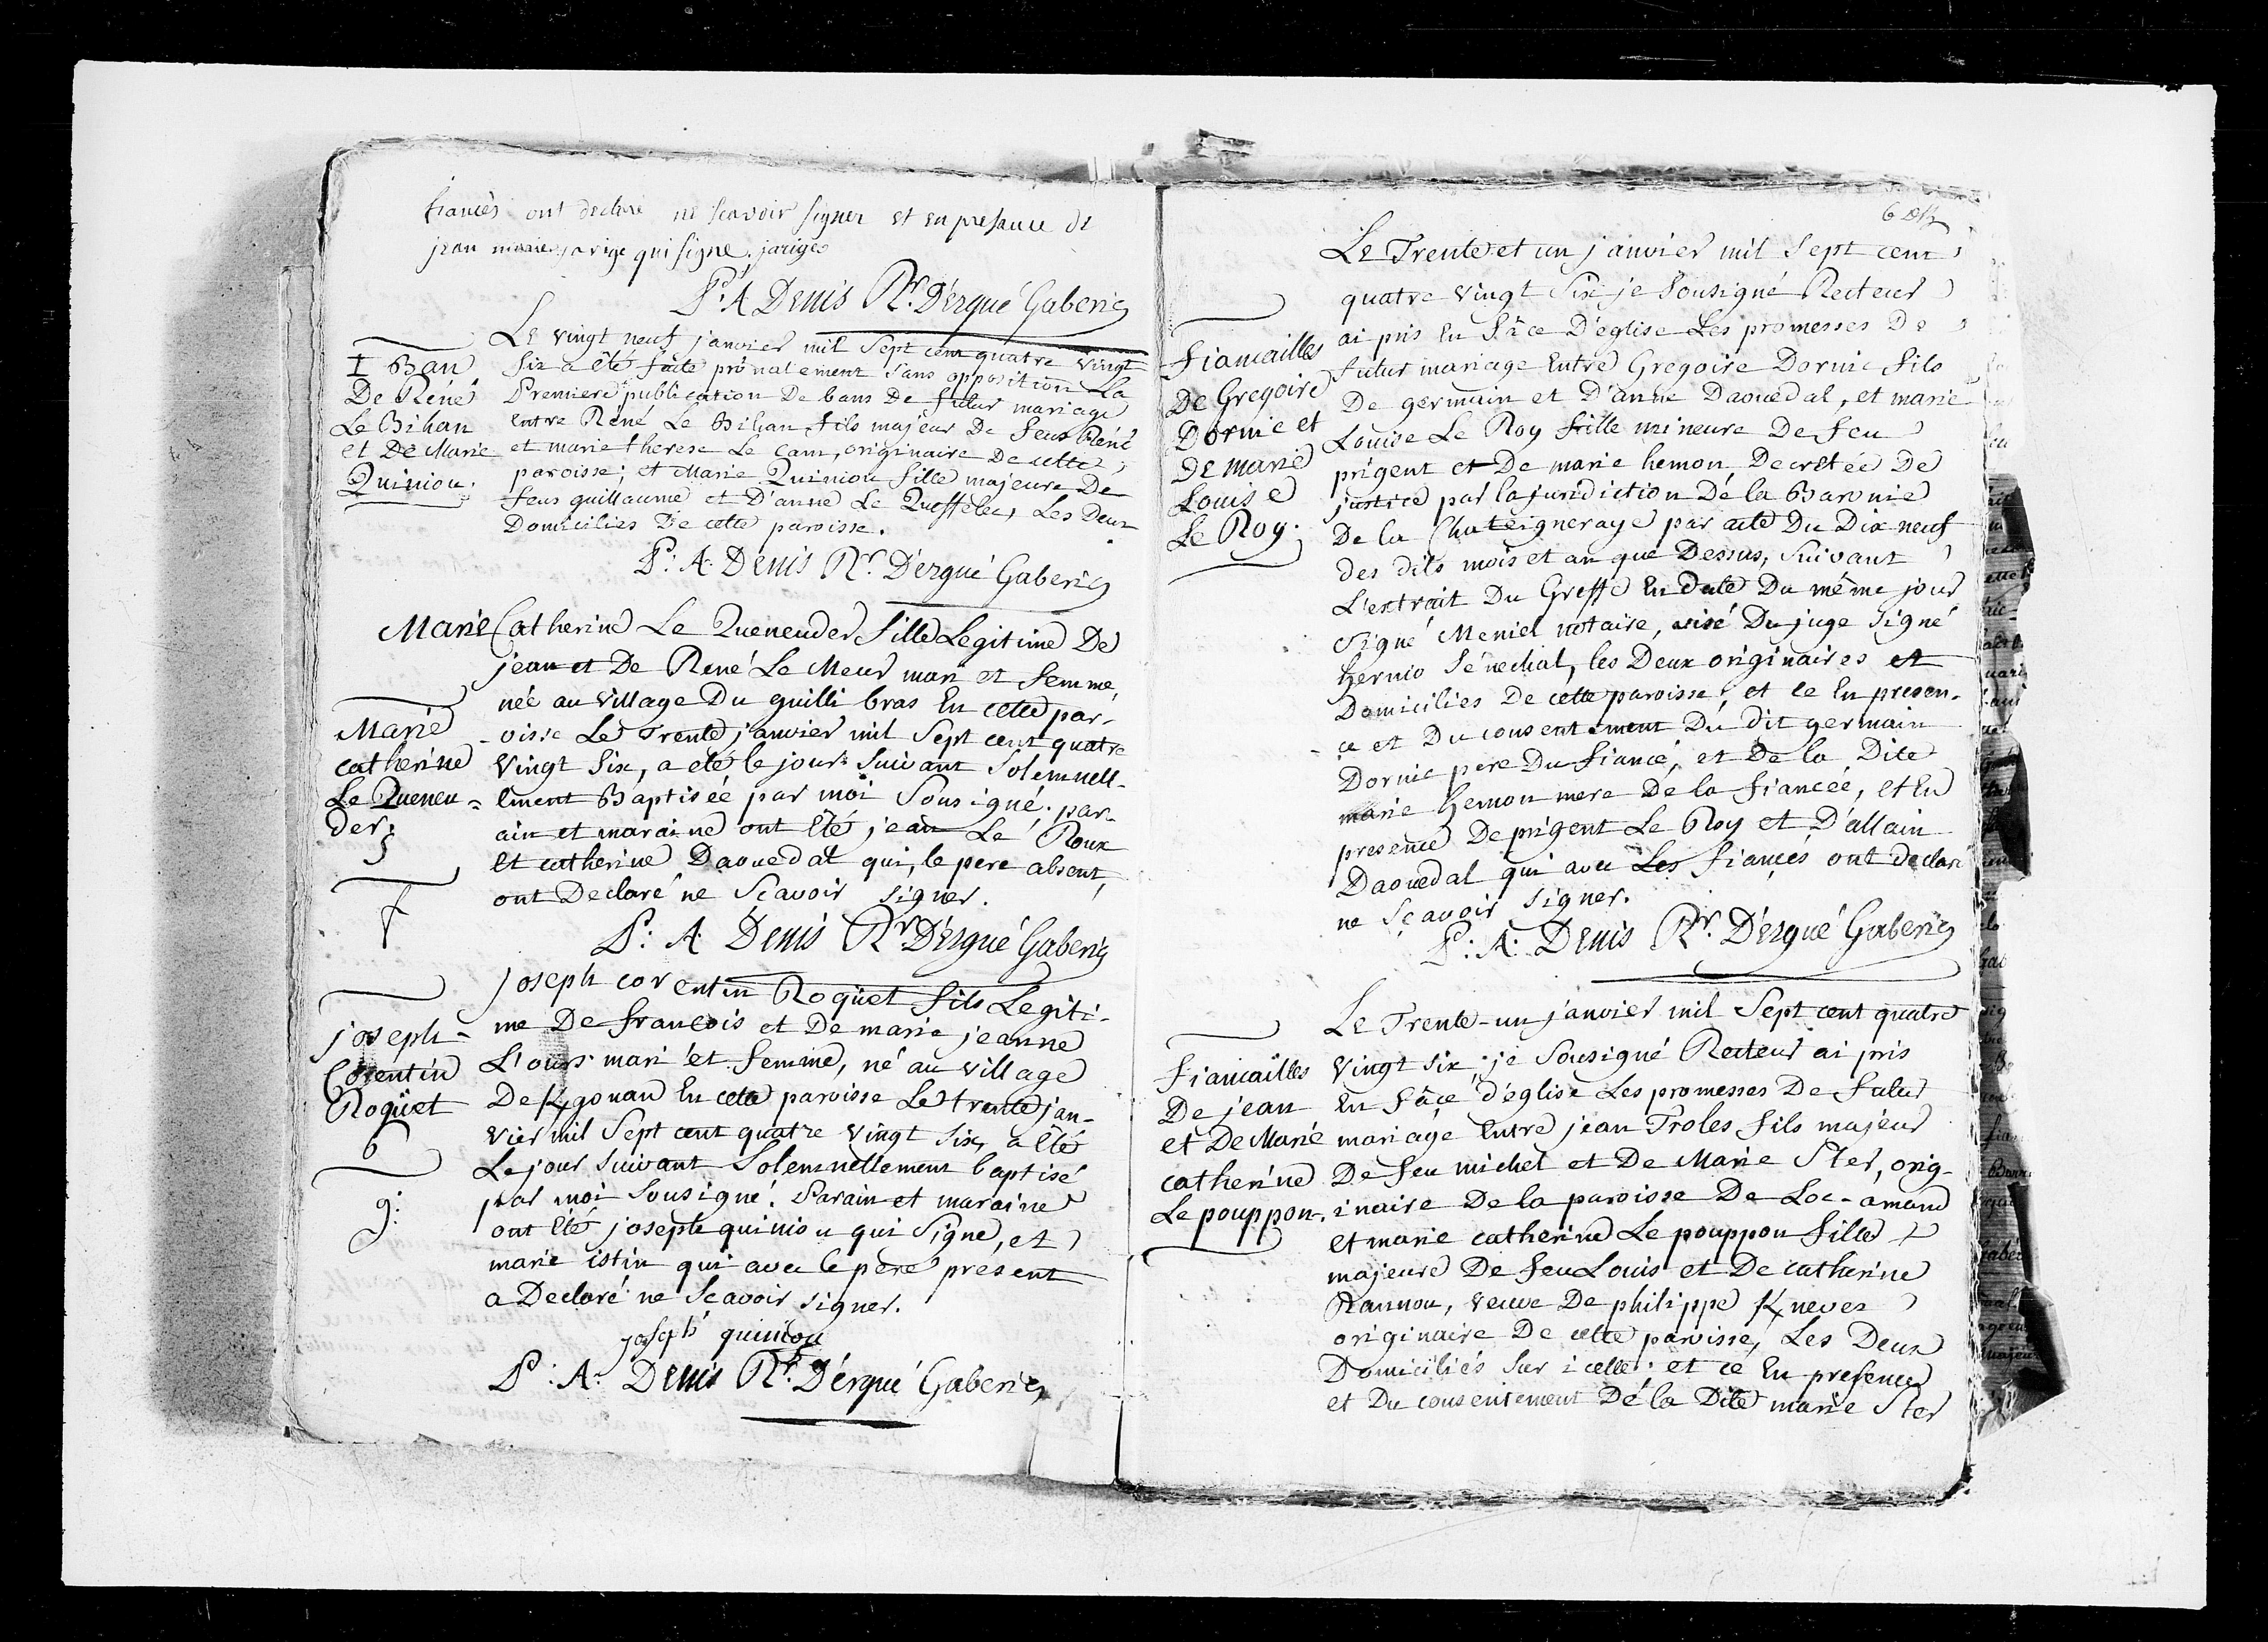 fiancés ont declaré ne scavoir signer et en presance de
jean marie jarige qui signe. jariges
P: A Denis Rr. D'Ergué Gaberic
I Ban
De Réné
Le Bihan
et De Marie
Quiniou.
Le vingt neuf janvier mil Sept cent quatre vingt
six a été faite prônalement sans opposition La
Premiere publication De bans De futur mariage
entre René Le Bihan fils majeur De feus René
et marie therese Le Cam, originaire De cette
paroisse; et Marie Quiniou fille majeure De
feus guillaume et D'anne Le Queffelec, Les Deux
Domiciliés De cette paroisse.
P: A. Denis Rr. D'Ergué Gaberic
Marie
catherine
Le Queneu-
der;
f
Marie Catherine Le Queneuder fille Legitime De
jean et De René Le Meur mari et femme,
née au village Du guilli bras En cette par-
oisse Le Trente janvier mil Sept cent quatre
vingt six, a eté le jour suivant Solemnell-
ement Baptisée par moi Sousigné; par-
ain et maraine ont Eté jean Le Roux
Et catherine Daouedal qui, le pere absent,
ont Declaré ne Sçavoir signer.
P: A. Denis Rr D'Ergué Gaberic
joseph
Corentin
Roqüet
6
g:
Joseph corentin Roqüet fils Legiti-
me De francois et De marie jeanne
L'ours mari et femme, né au village
De Kgonan En cette paroisse Le trente jan-
vier mil Sept cent quatre vingt six, a Eté
Le jour suivant Solemnellement baptisé
par moi Sousigné. Parain et maraine
ont Eté joseph quiniou qui signe, et
marie istin qui avec le pere present
a Declaré ne Sçavoir signer.
joseph quiniou
P: A: Denis Rr. D'Ergué Gaberic
6
Fiancailles
De Gregoire
Dornic et
De marie
Louise
Le Roy.
Le Trente et un janvier mil Sept cent
quatre vingt Six je Sousigné Recteur
ai pris En fâce D'église Les promesses De
futur mariage Entre Gregoire Dornic fils
De germain et D'anne Daouedal, et marie
Louise Le Roy fille mineure De feu
prigent et De marie hemon, Decretée De
justice par la jurediction De la Baronie
De la Chateigneraye par acte Du Dix neuf
des dits mois et an que Dessus, suivant
L'extrait Du Greffe En date Du même jour
signé Meniel notaire, visé Du juge signé
hernio sénechal, les Deux originaires et
Domiciliés De cette paroisse; et ce En presen-
ce et Du consentement Du dit germain
Dornic pere Du fiancé, et De la Dite
marie hemon mere De la fiancée, et En
presence De prigent Le Roy et D'allain
Daouedal qui avec Les fiancés ont declaré
ne Sçavoir signer.
P: A: Denis Rr. D'Ergué Gaberic
Fiancailles
De jean
et De Marie
catherine
Le pouppon.
Le Trente-un janvier mil Sept cent quatre
vingt six; je Sousigné Recteur ai pris
En fâce d'église Les promesses De futur
mariage Entre jean Troles fils majeur
De feu michel et De Marie Ster, orig-
inaire De la paroisse De Loc-amand
et marie catherine Le pouppon fille
majeure De feu Louis et De catherine
Rannou, veuve De philippe Knevez
originaire De cette paroisse, Les Deux
Domiciliés sur icelle; et ce En presence
et Du consentement De la Dite marie Ster